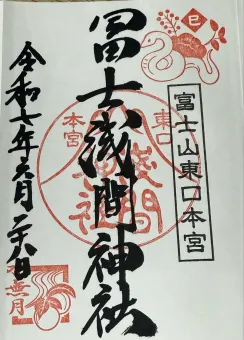 巳
富士山東口本宮
冨士浅間神社
東口
本宮
令和七年六月二十八日
水無月